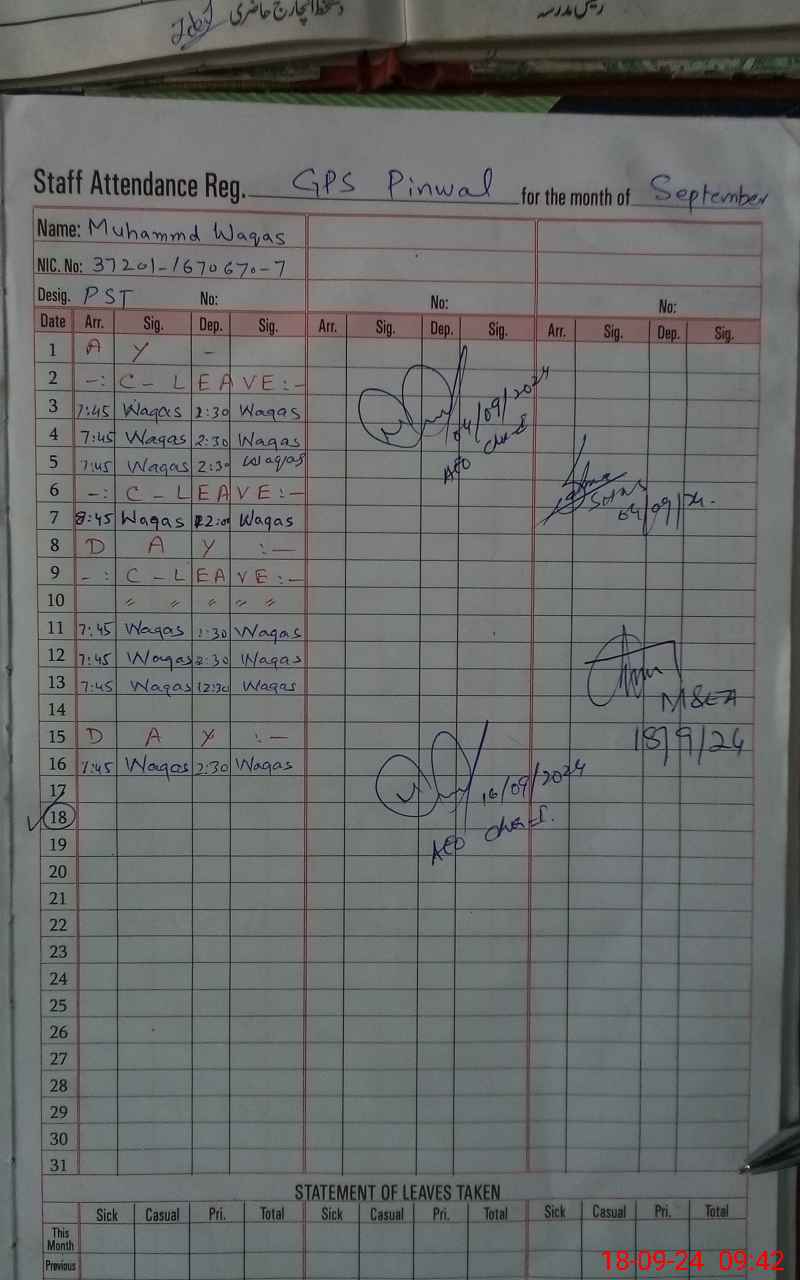 دستخط انچارج حاضری
رئیس مدرسہ
Staff Attendance Reg. GPS Pinwal for the month of September
Name: Muhammd Waqas
NIC. No: 37201-1670670-7
Desig. PST No: No: No:
Date Arr. Sig. Dep. Sig. Arr. Sig. Dep. Sig. Arr. Sig. Dep. Sig.
1 A Y -
2 -: C - L E A V E :-
3 7:45 Waqas 2:30 Waqas
4 7:45 Waqas 2:30 Waqas
04/09/2024
5 7:45 Waqas 2:30 Waqas
AEO
6 -: C - L E A V E :-
7 8:45 Waqas 12:00 Waqas
8 D A Y :-
9 -: C - L E A V E :-
10 〃 〃 〃 〃 〃
11 7:45 Waqas 2:30 Waqas
12 7:45 Waqas 2:30 Waqas
13 7:45 Waqas 12:30 Waqas
14
MSEA
15 D A Y :-
18/9/24
16 7:45 Waqas 2:30 Waqas
16/09/2024
17
18
19
AEO
20
21
22
23
24
25
26
27
28
29
30
31
STATEMENT OF LEAVES TAKEN
Sick Casual Pri. Total Sick Casual Pri. Total Sick Casual Pri. Total
This Month
Previous
18-09-24 09:42